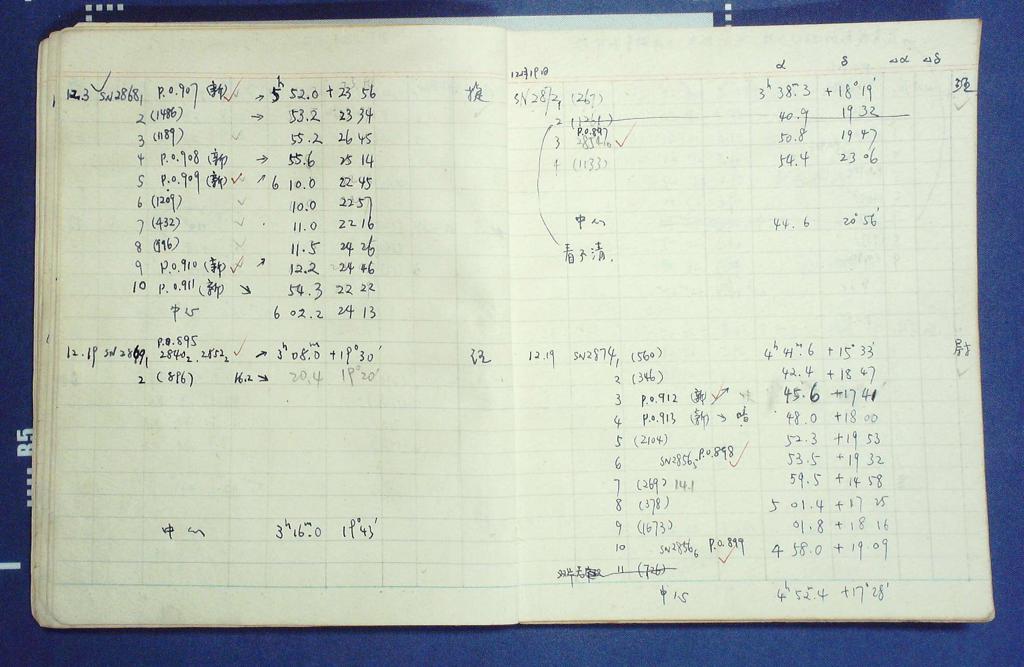 12.3 SN2868₁ P.0.907 (新) → 5ʰ 52.0 +23° 56
2 (1486) → 53.2 23 34
3 (1189) 55.2 26 45
4 P.0.908 (新) → 55.6 25 14
5 P.0.909 (新) ↗ 6 10.0 22 45
6 (1209) 10.0 22 57
7 (432) 11.0 22 16
8 (996) 11.5 24 26
9 P.0.910 (新) ↗ 12.2 24 46
10 P.0.911 (新) ↘ 54.3 22 22
中心 6 02.2 24 13
P.0.895
12.19 SN2869₁ 2840₂, 2852₂ → 3ʰ 08.ᵐ0 +19° 30′
2 (896) 16.2 ↘ 20.4 19° 20′
中心 3ʰ 16.ᵐ0 19° 43′
12月19日 α δ Δα Δδ
(267) 3ʰ 38.ᵐ3 +18° 19′
2 40.9 19 32
P.0.897
3 50.8 19 47
4 (1133) 54.4 23 06
中心 44.6 20° 56′
看不清.
12.19 SN2874₁ (560) 4ʰ 41.ᵐ6 +15° 33′
2 (346) 42.4 +18 47
3 P.0.912 (新) ↗ 45.6 +17 41
4 P.0.913 (新) → 暗 48.0 +18 00
5 (2104) 52.3 +19 53
6 SN2856₅ P.0.898 53.5 +19 32
7 (269) 14.1 59.5 +14 58
8 (378) 5 01.4 +17 25
9 (1673) 01.8 +18 16
10 SN2856₆ P.0.899 4 58.0 +19.09
11 (726)
中心 4ʰ 52.4 +17° 28′